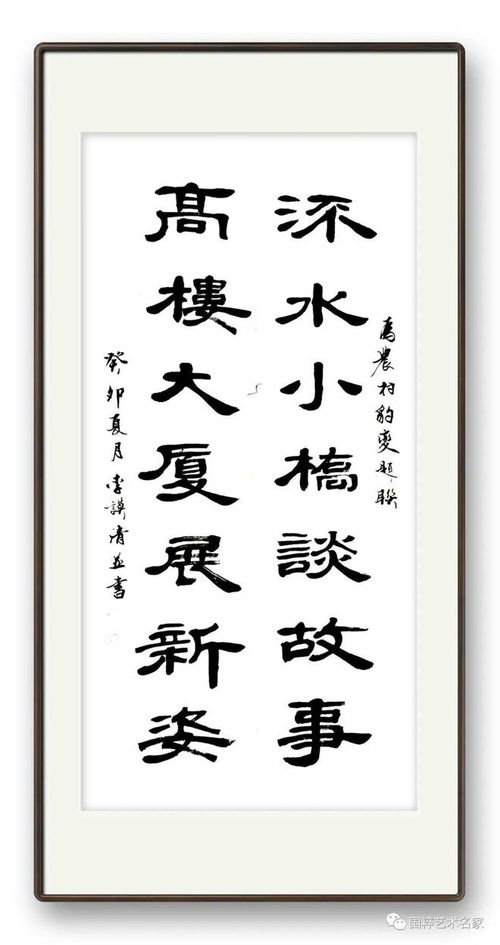 為農村豹變題聯
流水小橋談故事
高樓大厦展新姿
癸卯夏月李清並書
国粹艺术名家